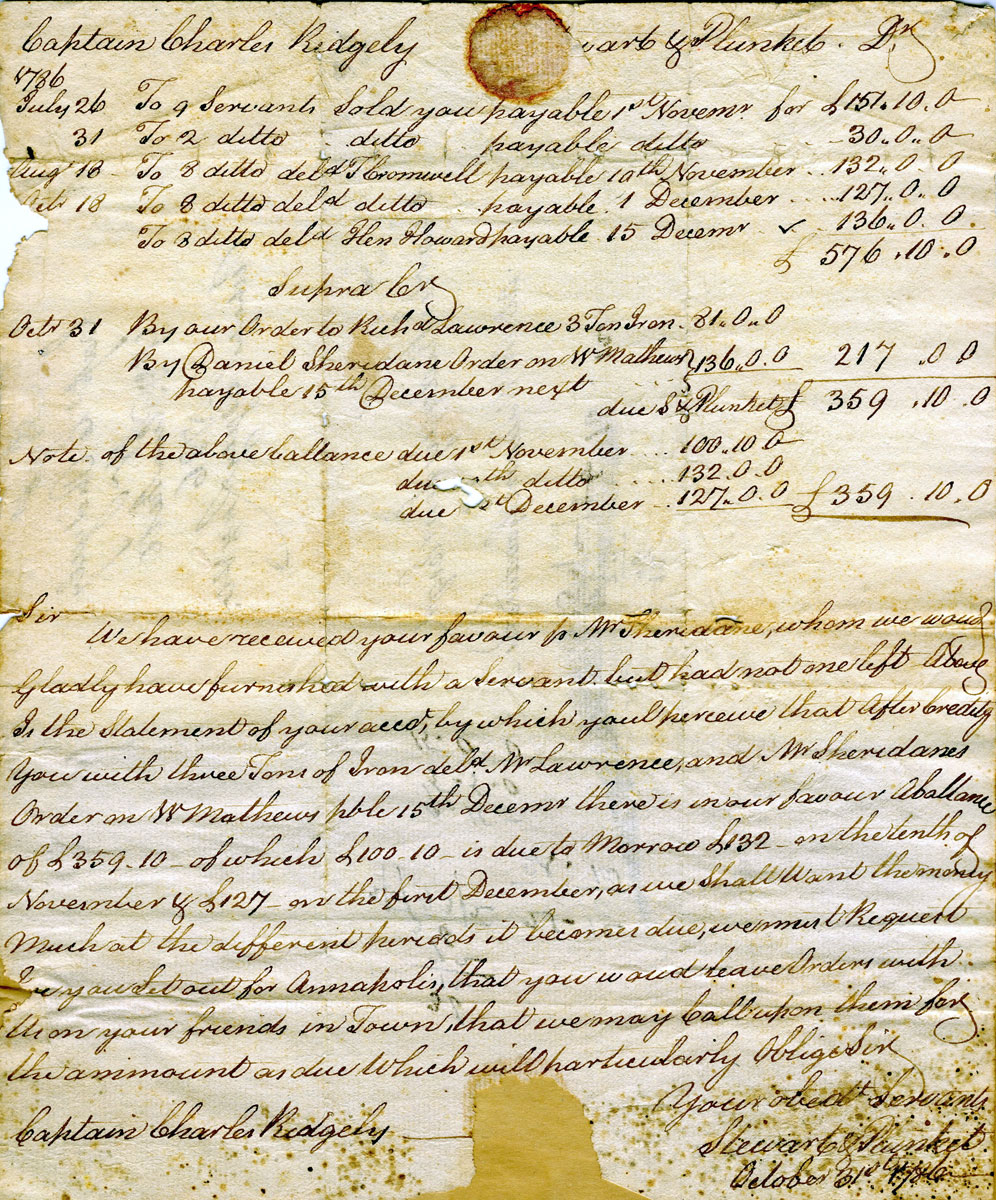 Captain Charles Ridgely wart & Plunket. Dr
1786
July 26 To 9 Servants Sold you payable 1st Novemr. for £151..10..0
31 To 2 ditto .. ditto payable ditto ... 30..0..0
Aug 18 To 8 ditto deld T Cromwell payable 10th November .. 132..0..0
18 To 8 ditto deld ditto .. payable 1 December .... 127..0..0
To 8 ditto deld Hen Howard payable 15 Decemr 136..0..0
£ 576..10..0
Supra Cr
Octr 31 By our Order to Richd Lawrence 3 Ton Iron. 81..0..0
By Daniel Sheridane Order on Wm Mathews 136..0..0 217..0 0
payable 15th December next
due S & Plunket £ 359..10..0
Note of the above ballance due 1st November .... 100..10..0
due th ditto .... 132..0..0
due st December .. 127..0..0 £359..10..0
Sir
We have received your favour p Mr Sheridane, whom we woud
Gladly have furnished with a Servant but had not one left Above
Is the Statement of your accot, by which youl perceive that After Creditg
You with three Tons of Iron deld. Mr Lawrence, and Mr Sheridanes
Order on Wm Mathews pble 15th Decemr there is in our favour A ballance
of £359..10 - of which £100..10 - is due to Morrow £132 - on the tenth of
November & £127 - on the first December, as we Shall Want the money
Much at the different periods it becomes due, we must Request
you Set out for Annapolis, that you woud Leave Orders with
Us on your friends in Town, that we may Call upon them for
the ammount as due Which will particularly Oblige Sir
Your obedt Servants
Captain Charles Ridgely Stewart & Plunket
October 31st 1786